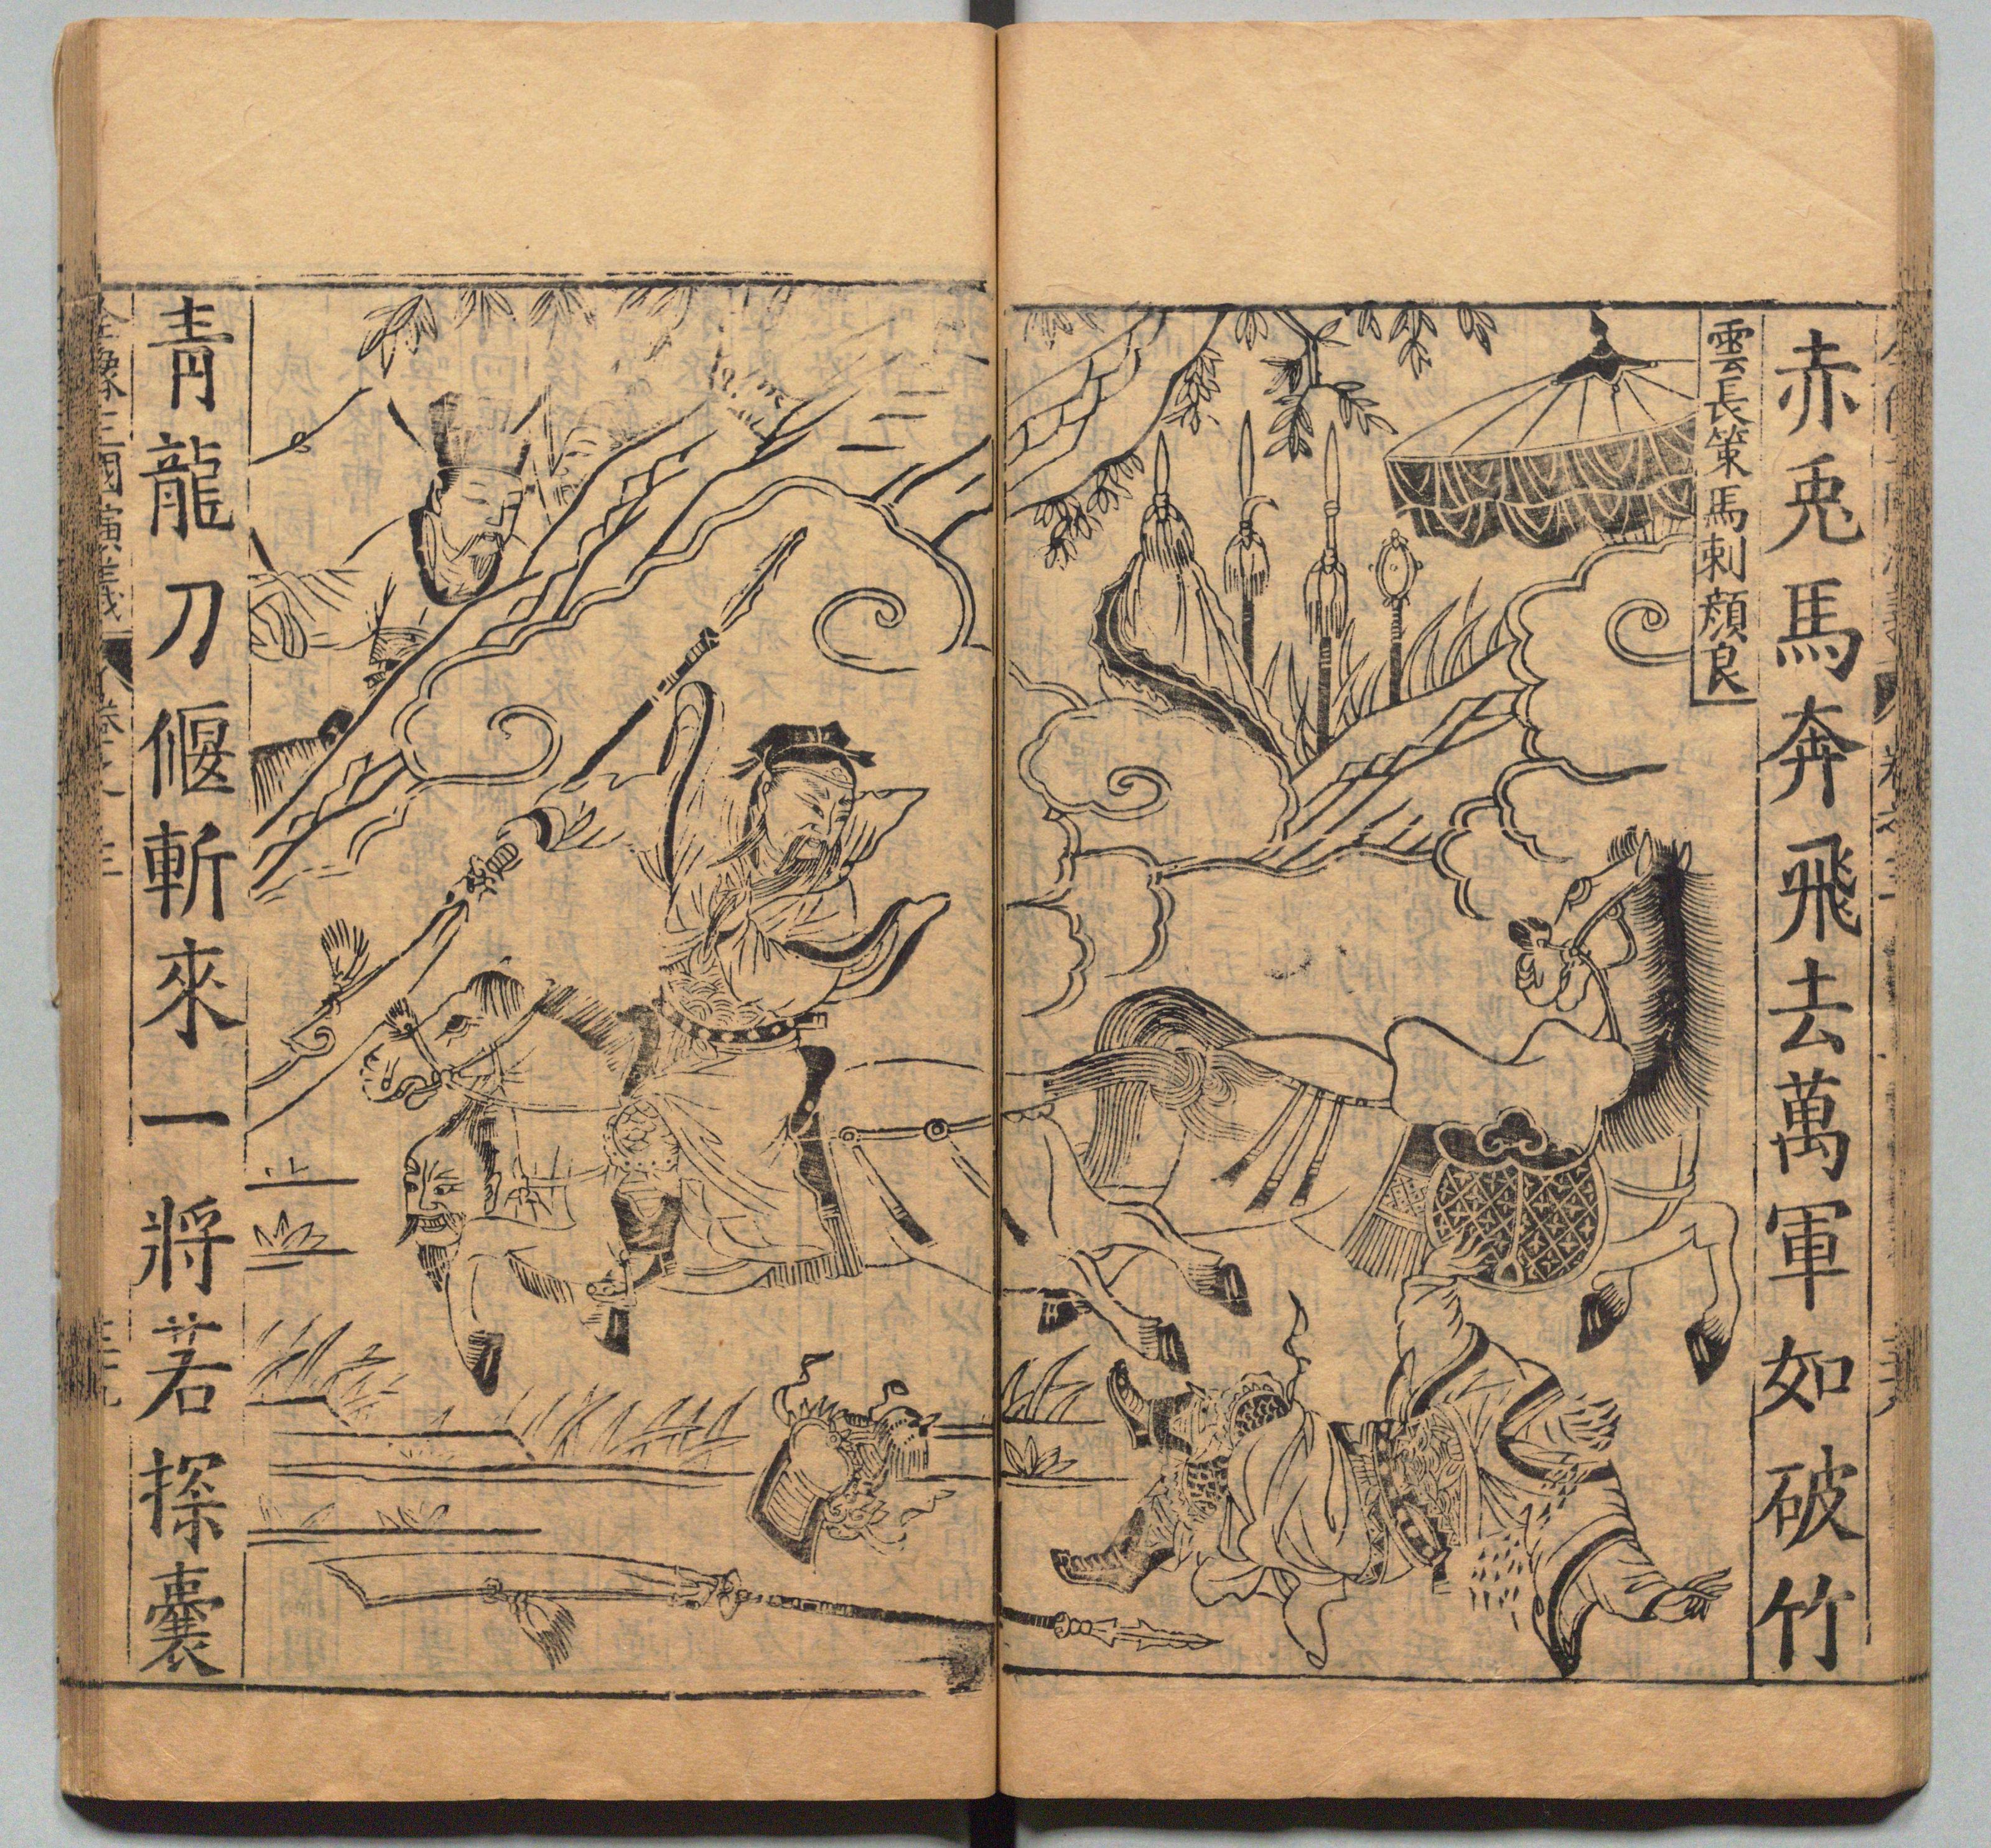 赤兎馬奔飛去萬軍如破竹
雲長策馬刺顔良
青龍刀偃斬來一將若探囊
全像三國演義
卷之三